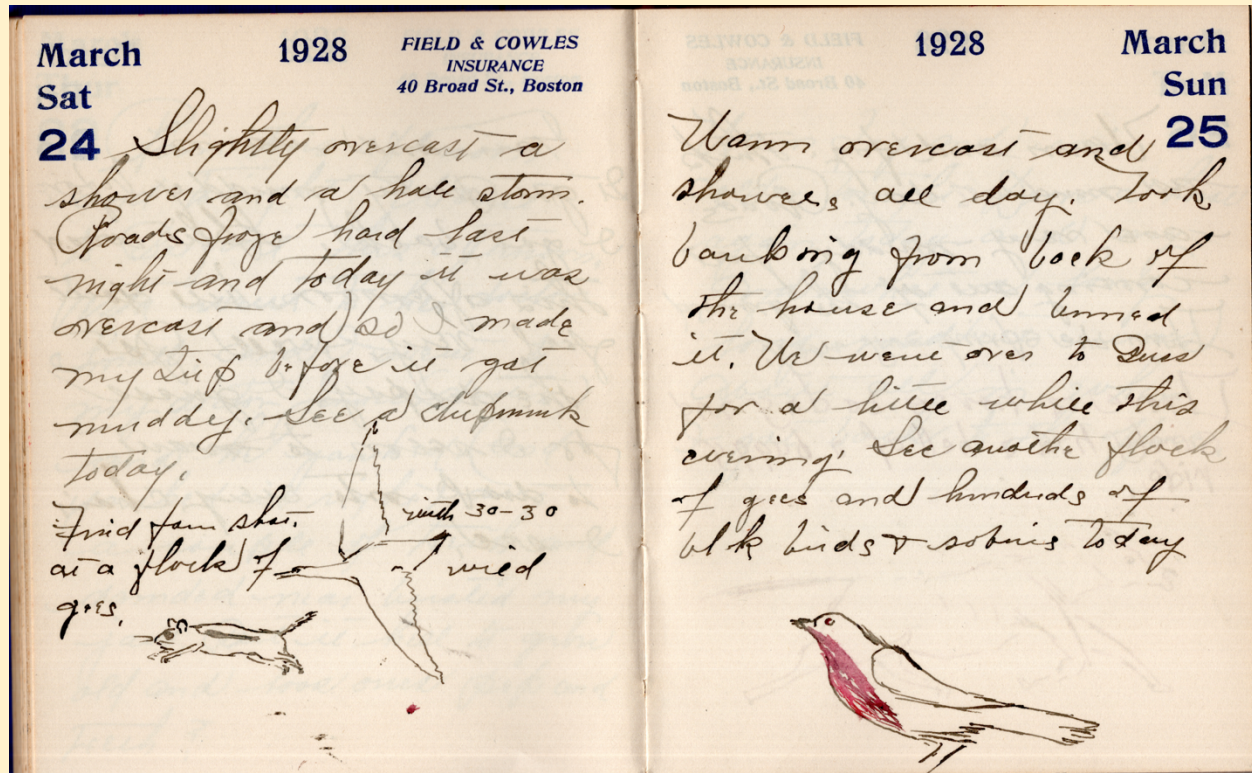 March 1928 FIELD & COWLES
INSURANCE
Sat 40 Broad St., Boston
24 Slightly overcast a
shower and a hale storm.
Roads froze hard last
night and today it was
overcast and so I made
my trip before it got
muddy. See a chipmunk
today.
Fired four shots with 30-30
at a flock of wild
gees.
1928 March
Sun
25
Warm overcast and
showers all day. Took
banking from back of
the house and burned
it. We were over to
for a little while this
evening. See another flock
of gees and hundreds of
blk birds & robins today